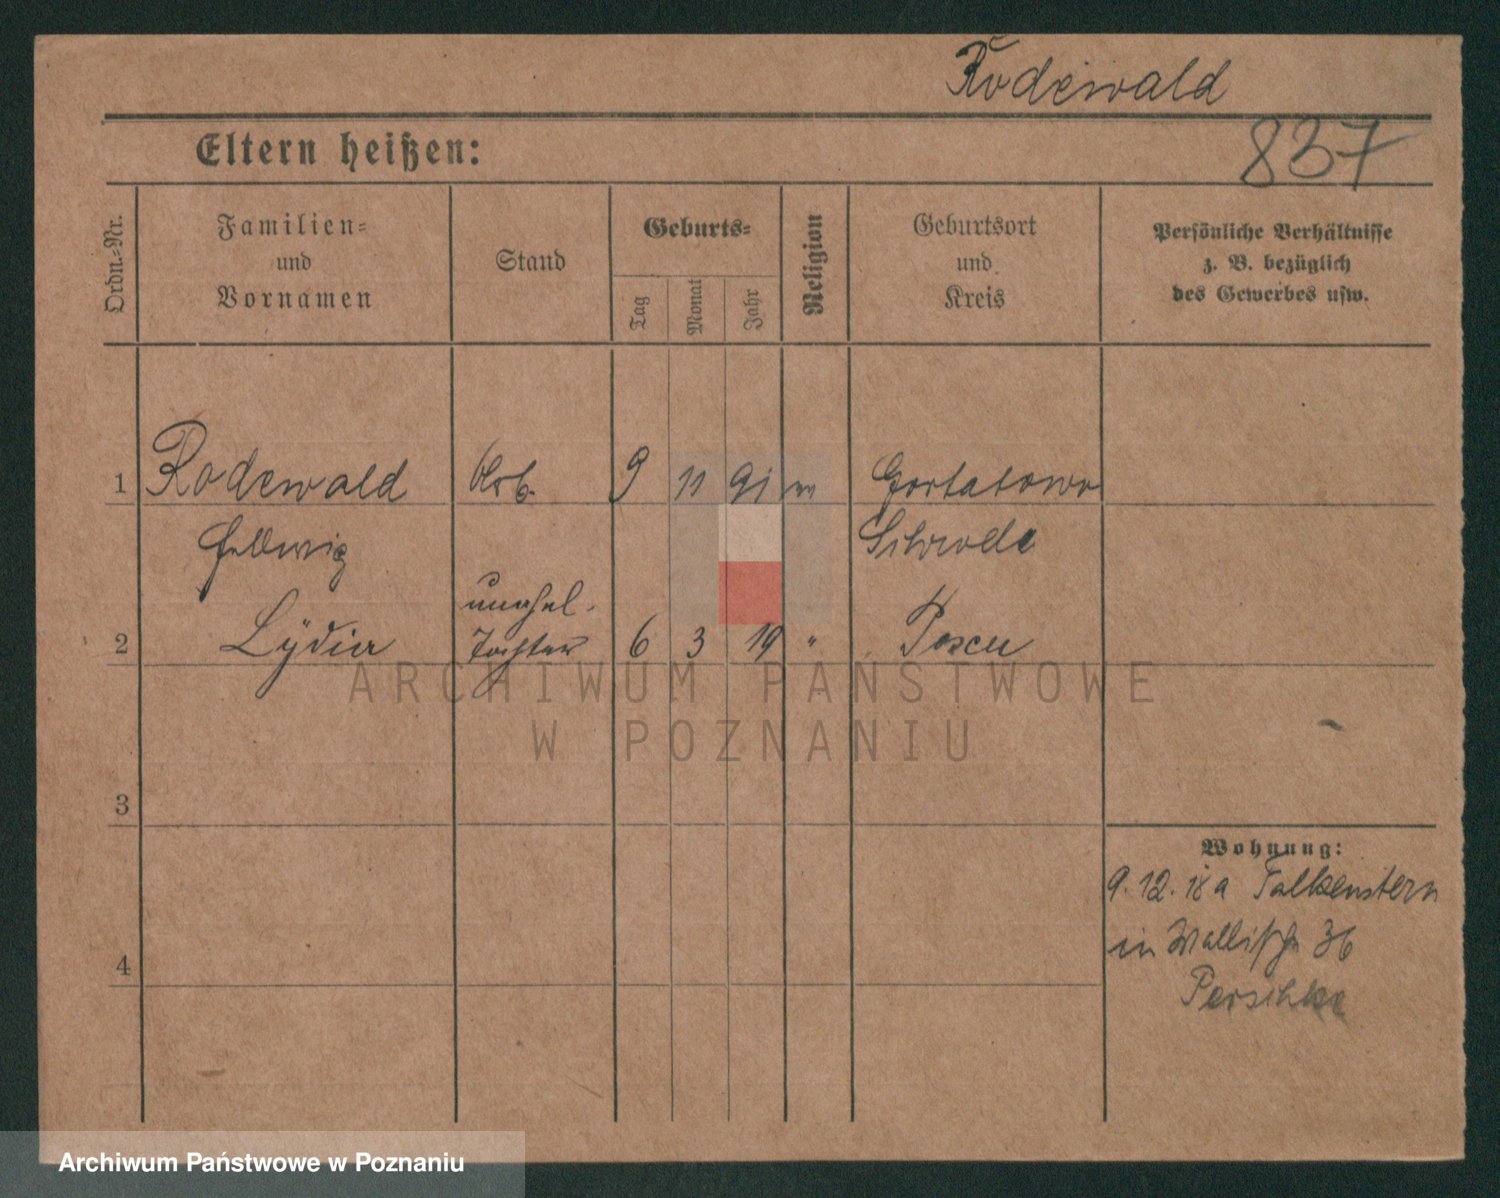 Rodewald
837
Eltern heißen:
Ordn.-Nr.
Familien-
und
Vornamen
Stand
Geburts-
Tag
Monat
Jahr
Religion
Geburtsort
und
Kreis
Persönliche Verhältnisse
z. B. bezüglich
des Gewerbes usw.
1 Rodewald Arb. 9 11 91 Gortatowo
Hedwig Schroda
unehel.
2 Lydia Tochter 6 3 19 " Posen
ARCHIWUM PAŃSTWOWE
W POZNANIU
3
Wohnung:
9.12.18 a Falkenstern
in Wallisch 36
4
Archiwum Państwowe w Poznaniu